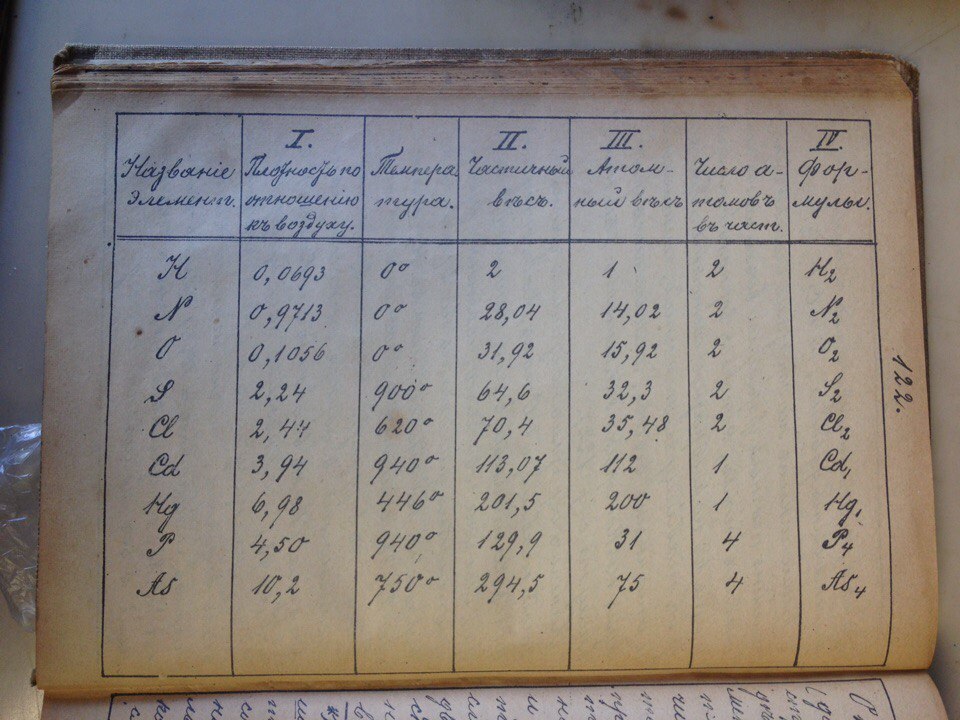 I. II. III. IV.
Названіе Плотность по Темпера Частичный Атом- Число а- Фор-
Элемент. отношенію тура. вѣсъ. ный вѣсъ томовъ мулы.
къ воздуху. въ част.
H 0,0693 0° 2 1 2 H₂
N 0,9713 0° 28,04 14,02 2 N₂
O 0,1056 0° 31,92 15,92 2 O₂
S 2,24 900° 64,6 32,3 2 S₂
Cl 2,44 620° 70,4 35,48 2 Cl₂
Cd 3,94 940° 113,07 112 1 Cd₁
Hg 6,98 446° 201,5 200 1 Hg₁
P 4,50 940° 129,9 31 4 P₄
As 10,2 750° 294,5 75 4 As₄
122.